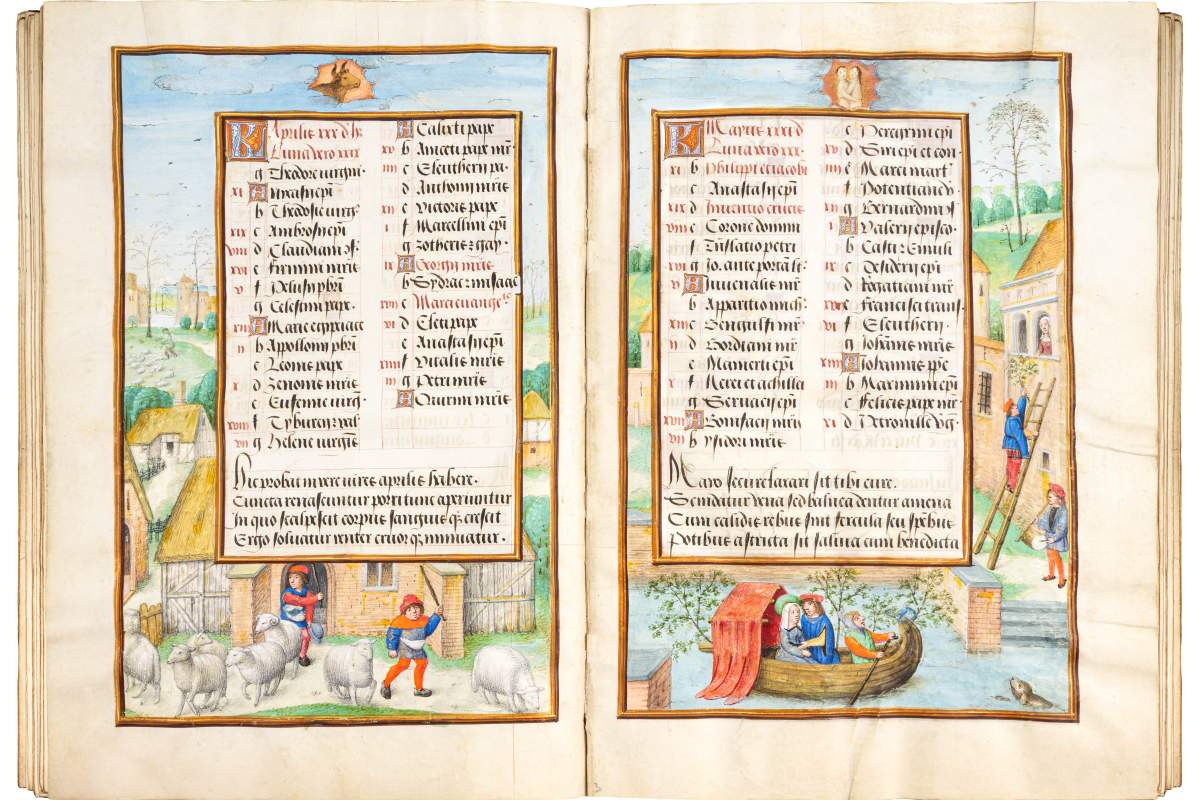 KL Aprilis xxx d. h.
Luna vero xxix
g Theodore virgin.
xi A
b Theodosie virg.
xix c Ambrosii epi
viii d Claudiani
xvi e Firmini mris
v f
g Celestini pape.
xiii A Marie egyptiace
ii b Appollonii pbri
c Leonis pape
x d Zenonis mris
e Eufemie virg.
xviii f Tyburcii z val.
vii g Helene virgis
A Calixti pape
xv b Aniceti pape mr
iiii c Eleutherii pa.
d Anthonii mris
xii e Victoris pape
i f Marcellini epi
g Zotheris z gay.
ix A Georgii mris
b Sydrac misaac
xvii c Marci euange
vi d Cleti pape
e Anastasii epi
xiiii f Vitalis mris
iii g Petri mris
A Quirini mris
Hic probat in vere vires aprilis habere.
Cuncta renascuntur pori tunc aperiuntur
In quo scalpescit corpus sanguis qz crescit
Ergo soluatur venter cruor qz minuatur.
KL Mayus xxxi d
Luna vero xxx.
xi b Philippi et iacobi
c Anastasii epi
xix d Inventio crucis
viii e Corone domini
f petri
xvi g Jo. ante portā lt.
v A Juvenalis mr
b Apparitio mich.
xiii c Gengulfi mr
ii d Gordiani mr
e Mamerti epi
x f Nerei et achillei
g Servacii epi
xviii A Bonifacii mr
vii b Ysidori mris
c Peregrini epi
xv d Siri epi et con.
iiii e Marci mart
f Potentiane
xii g Bernardini
i A Valerii episco.
b Casti z Emili
ix c Desiderii epi
d Rogatiani mr
xvii e Francisci trans.
vi f Eleutherii.
g Johannis mr
xiiii A Johannis ppe
iii b Maximini epi
c Felicis pape mr.
xi d Petronille vg.
Mayo secure laxari sit tibi cure.
Scindatur vena sed balnea dentur amena
Cum calidis rebus sint fercula seu speciebus
Potibus astricta sit salvia cum benedicta